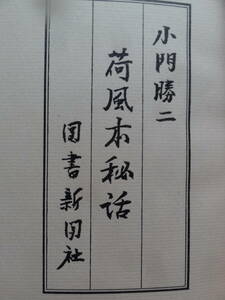 小門勝二
荷風本秘話
図書新聞社